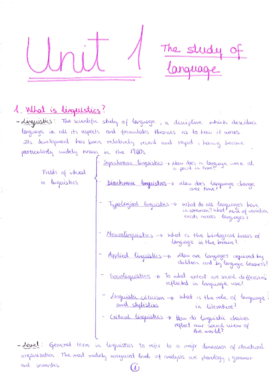 Unit 1
The study of
language
1. What is linguistics?
- Linguistics: The scientific study of language, a discipline which describes
language in all its aspects and formulates theories as to how it works.
Its development has been relatively recent and rapid, having become
particularly widely known in the 1960s.
Fields of study
in linguistics
Synchronic linguistics → How does a language work at
a point in time?
Diachronic linguistics → How does language change
over time?
- Typological linguistics → what do all languages have
in common? what kind of variation
exists across languages?
- Neurolinguistics → what is the biological basis of
language in the brain?
- Applied linguistics → How are languages acquired by
children and by language learners?
- Sociolinguistics → To what extent are social differences
reflected in language use?
- Linguistic criticism → what is the role of language
and stylistics
in literature?
- Critical linguistics → How do linguistic choices
reflect our social views of
the world?
- Level: General term in linguistics to refer to a major dimension of structural
organization. The most widely recognized levels of analysis are phonology, grammar
and semantics.
1